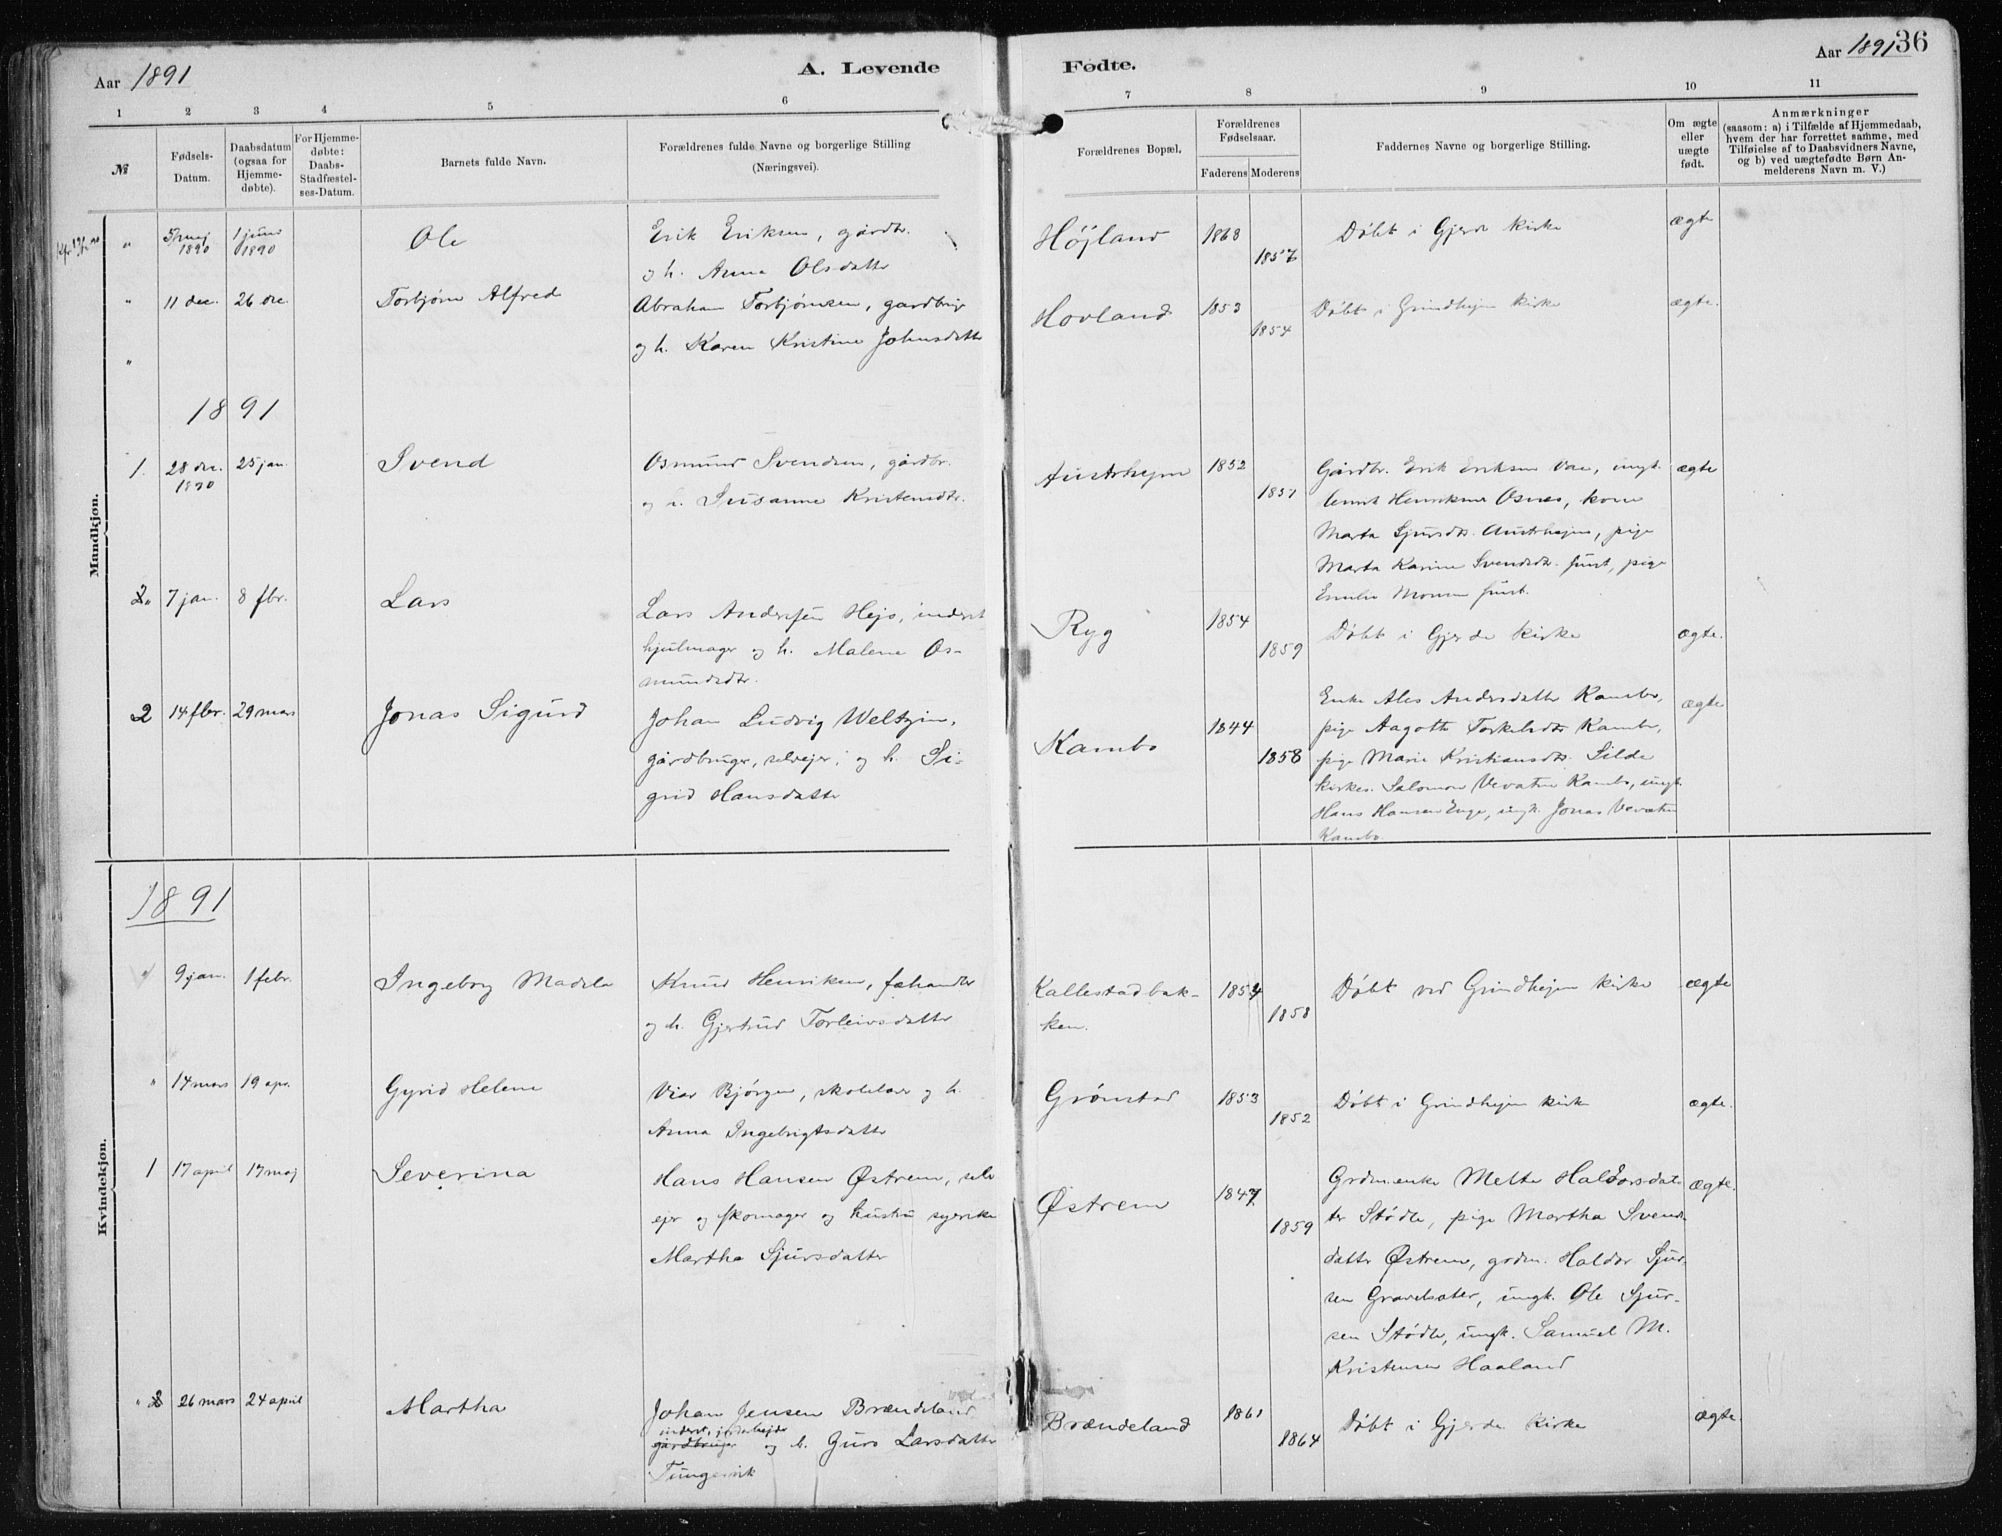 Aar 1891
A. Levende
Fødte.
Aar 1891 36
1 2 3 4 5 6 7 8 9 10 11
№
Fødsels-
Datum.
Daabsdatum
(ogsaa for
Hjemme-
døbte).
For Hjemme-
døbte:
Daabs-
Stadfæstel-
ses-Datum.
Barnets fulde Navn.
Forældrenes fulde Navne og borgerlige Stilling
(Næringsvei).
Forældrenes Bopæl.
Forældrenes
Fødselsaar.
Faderens Moderens
Faddernes Navne og borgerlige Stilling.
Om ægte
eller
uægte
født.
Anmærkninger
(saasom: a) i Tilfælde af Hjemmedaab,
hvem der har forrettet samme, med
Tilføielse af to Daabsvidners Navne,
og b) ved uægtefødte Børn An-
melderens Navn m. V.)
Mandkjøn.
" 5 maj 1 juni
1890 1890
Ole
Erik Eriksen, gårdbr.
og h. Anna Olsdatter
Højland
1868
1857
Døbt i Gjerde kirke
ægte
" 11 dec. 26 dec.
Torbjørn Alfred
Abraham Torbjørnsen, gardbrug
og h. Karen Kristine Johnsdatter
Hovland
1853
1854
Døbt i Grindhejm kirke
ægte.
"
1891
1. 28 dec. 25 jan.
1890
Svend
Osmund Svendsen, gårdbr.
og h. Susanne Kristensdtr.
Austrhejm
1852
1851
Gårdbr. Erik Eriksen Vae, ungk.
Henriksen Osnes, kone
Marta Sjursdtr. Austrhejm, pige
Marta Karine Svendsdtr. smst, pige
Emelie smst.
ægte
2 " 7 jan. 8 fbr.
Lars
Lars Andersen Hejs, inderst
hjulmager og h. Malene Os-
mundsdtr.
Ryg
1854
1859
Døbt i Gjerde kirke
ægte.
2 14 fbr. 29 mars
Jonas Sigurd
Johan Ludvig Weltzin,
gårdbruger, selvejer, og h. Si-
grid Hansdatter
Kambo
1844
1858
Enke Ales Andersdatter Kambo,
pige Aagoth Torkelsdtr Kambo,
pige Marie Kristiansdtr. Silde
kirkes. Salomon Vevatne Kambo, ungk.
Hans Hansen Enge, ungk. Jonas Vevatne
Kambo.
ægte
Kvindekjøn.
1891
" 9 jan. 1 febr.
Ingeborg Madela
Knud Henriksen, fæhandler
og h. Gjertrud Torleivsdatter
Kallestadbak-
ken.
1854
1858
Døbt ved Grindhejm kirke
ægte
" 14 mars 19 apr.
Gyrid Helene
Viar Bjørgen, skolelærer og h.
Anna Ingebrigtsdatter
Grønstad
1853
1852
Døbt i Grindhejm kirke
ægte.
1 17 april 17 maj
Severina
Hans Hansen Østrem, selv
ejer og skomager og hustru syerske
Martha Sjursdatter
Østrem
1847
1859
Grdm.enke Mette Haldorsdat-
ter Stødle, pige Martha Svends
datter Østrem, grdm. Haldor Sjur-
sen Gravelsæter, ungk. Ole Sjur-
sen Stødle, ungk. Samuel M.
Kristensen Haaland
ægte.
" 2 26 mars 24 april
Martha
Johan Jensen Brændeland
inderst, jordarbejder
gårdbruger og h. Guro Larsdatter
Tungesvik
Brændeland
1861
1864
Døbt i Gjerde kirke
ægte.